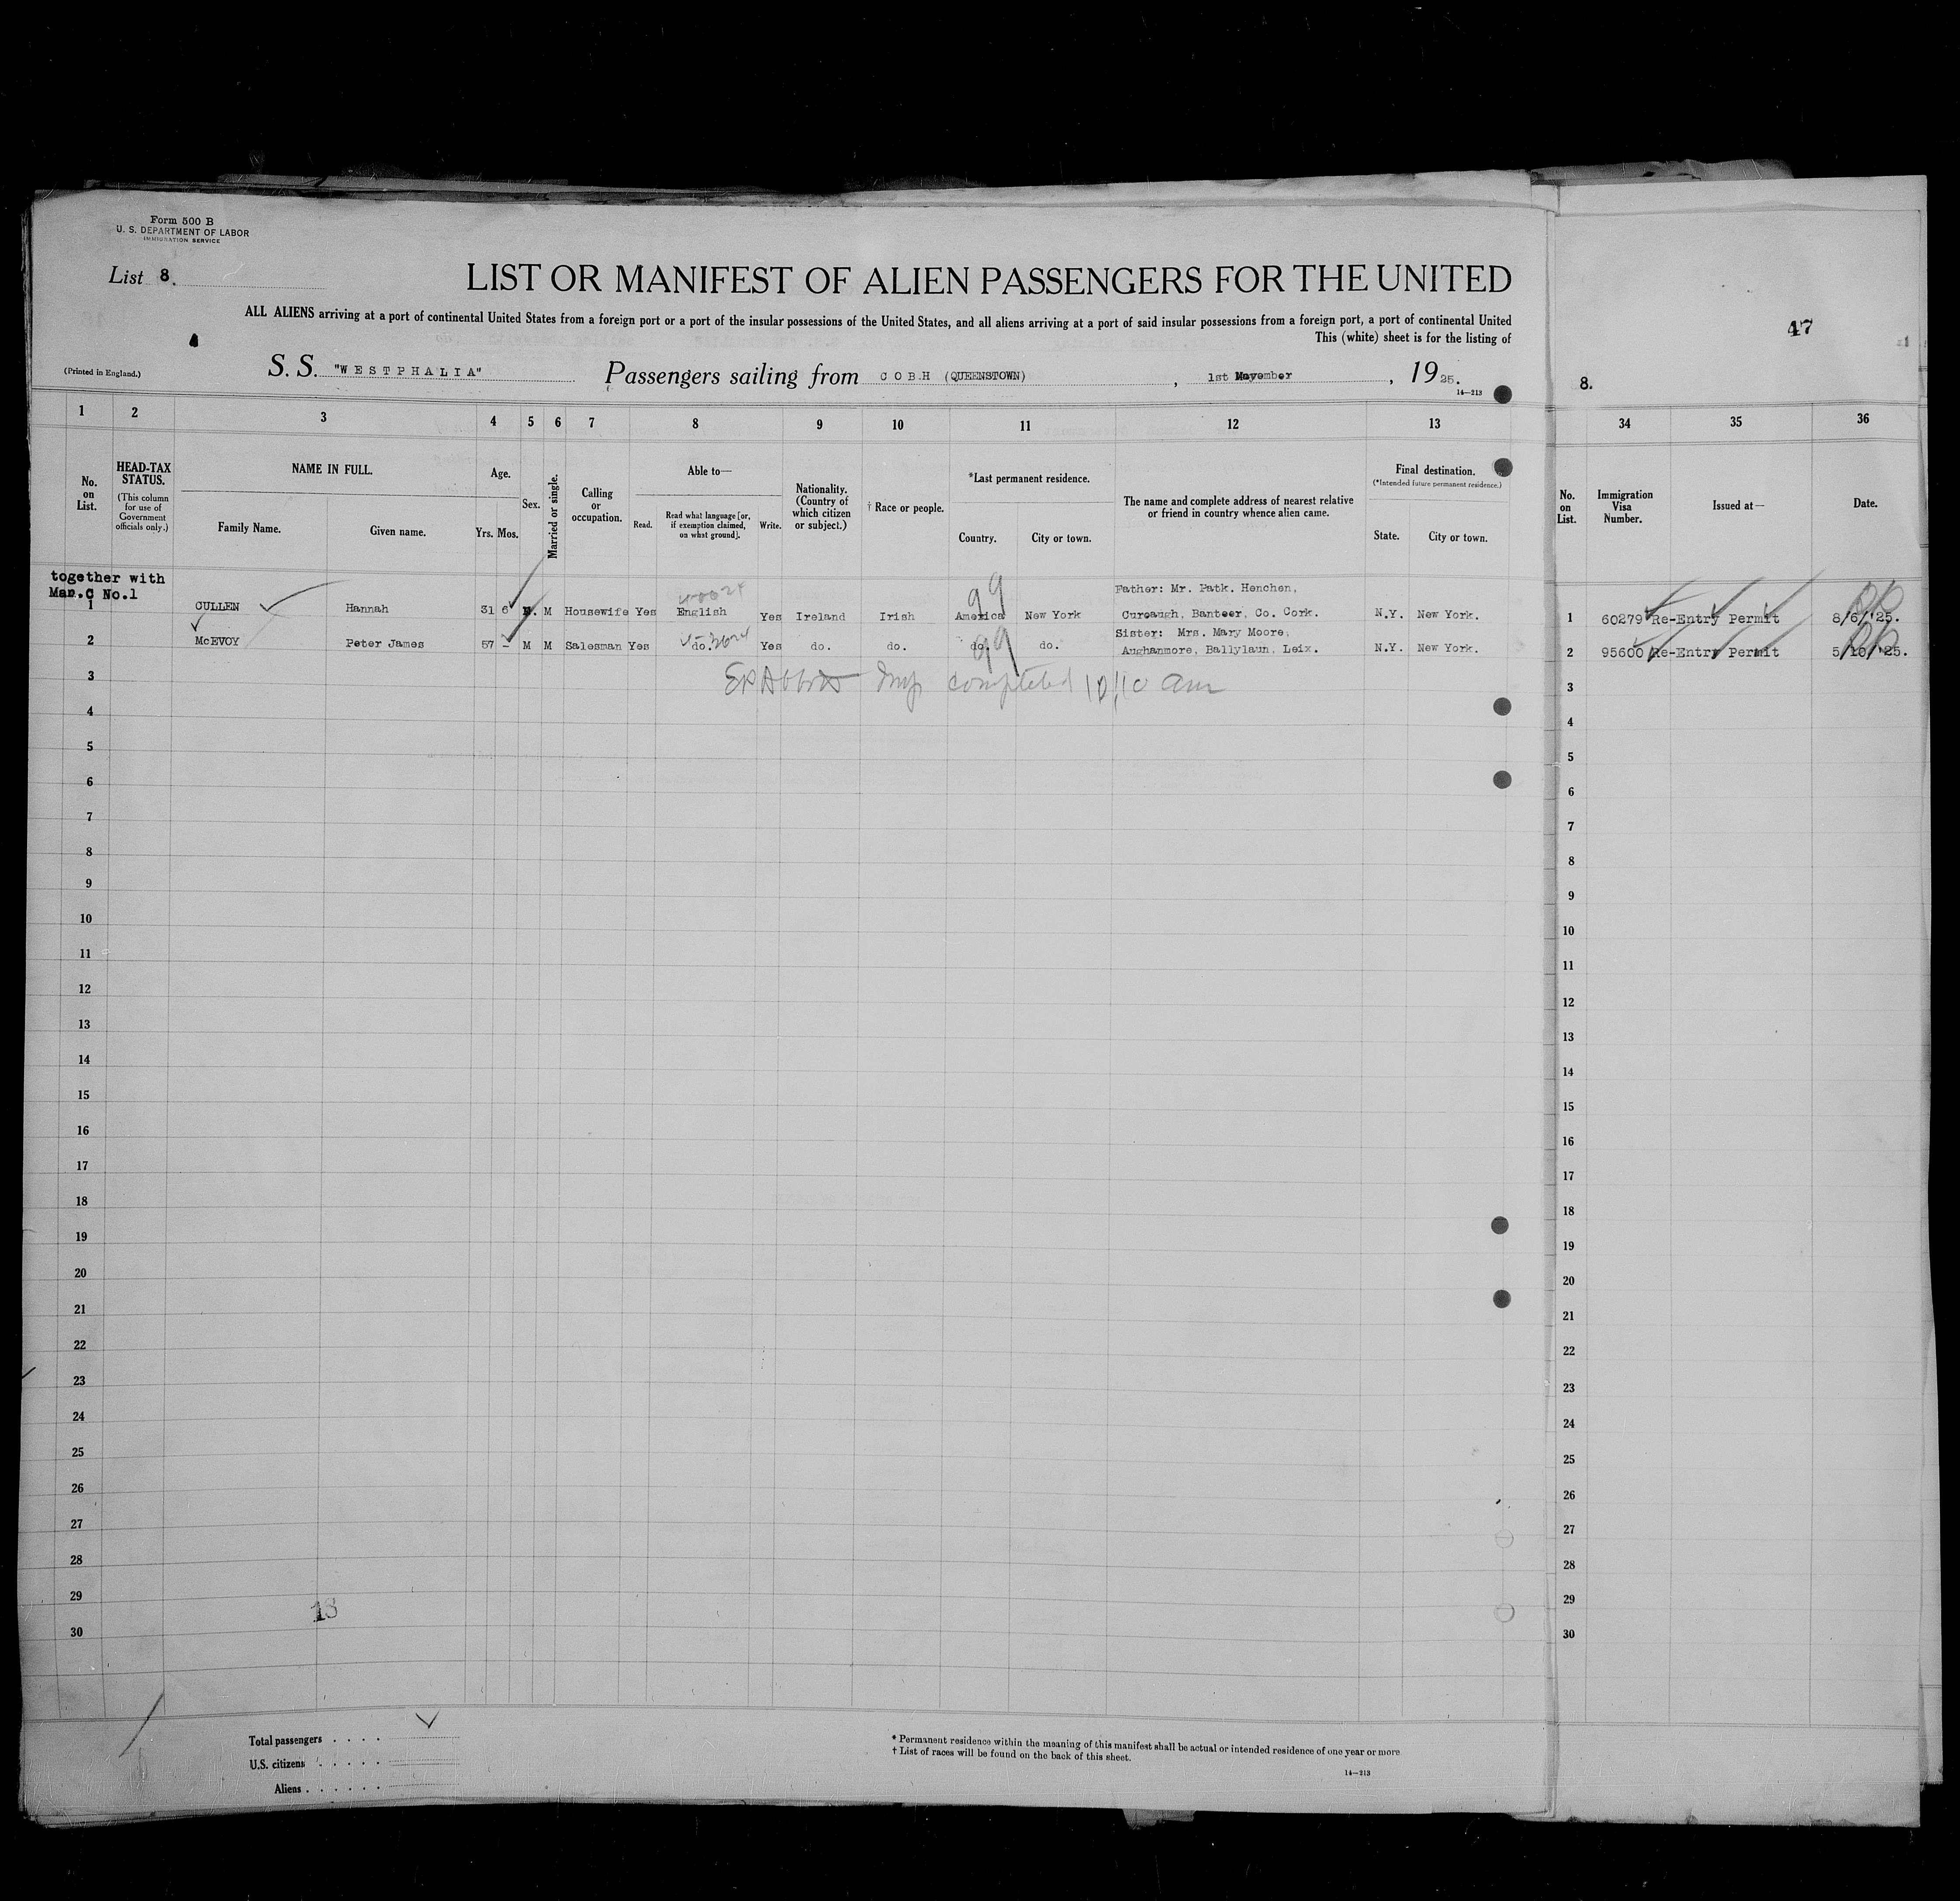 Form 500 B
U. S. DEPARTMENT OF LABOR
IMMIGRATION SERVICE
List 8.
LIST OR MANIFEST OF ALIEN PASSENGERS FOR THE UNITED
ALL ALIENS arriving at a port of continental United States from a foreign port or a port of the insular possessions of the United States, and all aliens arriving at a port of said insular possessions from a foreign port, a port of continental United
This (white) sheet is for the listing of
47
(Printed in England.)
S. S. "WESTPHALIA" Passengers sailing from COBH (QUEENSTOWN), 1st November, 1925.
14—213
8.
1 2 3 4 5 6 7 8 9 10 11 12 13 34 35 36
No. on List.
HEAD-TAX STATUS.
(This column for use of Government officials only.)
NAME IN FULL.
Family Name. Given name.
Age.
Yrs. Mos.
Sex.
Married or single.
Calling or occupation.
Able to—
Read. Read what language [or, if exemption claimed, on what ground]. Write.
Nationality. (Country of which citizen or subject.)
† Race or people.
*Last permanent residence.
Country. City or town.
The name and complete address of nearest relative or friend in country whence alien came.
Final destination.
(*Intended future permanent residence.)
State. City or town.
No. on List.
Immigration Visa Number.
Issued at—
Date.
together with
Man.C No.1
Father: Mr. Patk. Henchen,
1 CULLEN Hannah 31 6 M Housewife Yes English Yes Ireland Irish America New York Cureaugh, Banteer, Co. Cork. N.Y. New York. 1 60279 Re-Entry Permit 8/6/'25.
Sister: Mrs. Mary Moore,
2 McEVOY Peter James 57 - M M Salesman Yes do. Yes do. do. do. do. Aughanmore, Ballylaun, Leix. N.Y. New York. 2 95600 Re-Entry Permit 5/10/'25.
99
99
completed 10,10 am
3 3
4 4
5 5
6 6
7 7
8 8
9 9
10 10
11 11
12 12
13 13
14 14
15 15
16 16
17 17
18 18
19 19
20 20
21 21
22 22
23 23
24 24
25 25
26 26
27 27
28 28
29 29
18
30 30
Total passengers
U.S. citizens
Aliens
* Permanent residence within the meaning of this manifest shall be actual or intended residence of one year or more
† List of races will be found on the back of this sheet.
14—213